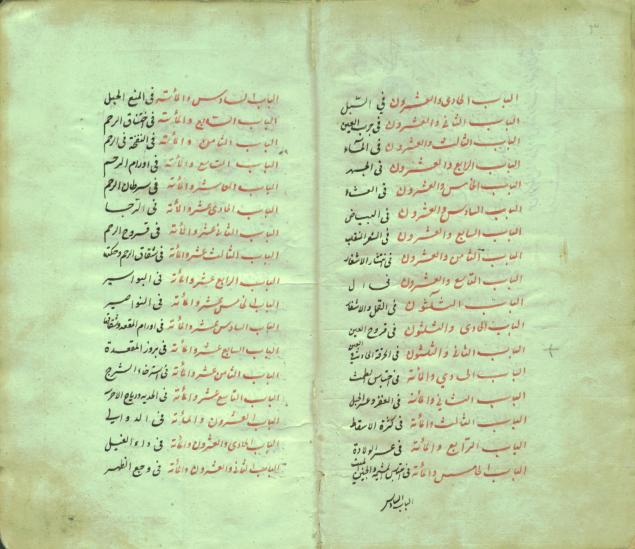 الباب الحادى والعشرون في السبل
الباب الثانى والعشرون في جرب العين
الباب الثالث والعشرون في
الباب الرابع والعشرون في الجهر
الباب الخامس والعشرون في العشاء
الباب السادس والعشرون في البياض
الباب السابع والعشرون في الشعر المنقلب
الباب الثامن والعشرون في انتثار الاشفار
الباب التاسع والعشرون في
الباب الثلثون في القمل والاشفار
الباب الحادى والثلثون في قروح العين
الباب الثانى والثلثون في العين
الباب الحادي والمأئة في احتباس الطمث
الباب الثانى والمأئة في العقر وعسر الحبل
الباب الثالث والمأئة في كثرة الاسقاط
الباب الرابع والمأئة في عسر الولادة
الباب الخامس والمأئة في احتباس المشيمة والجنين
الباب السادس
الباب السادس والمأئة في المنع الحبل
الباب السابع والمأئة في اختناق الرحم
الباب الثامن والمأئة في النفخة في الرحم
الباب التاسع والمأئة في اورام الرحم
الباب العاشر والمأئة في سرطان الرحم
الباب الحادى عشر والمأئة في الرجا
الباب الثانى عشر والمأئة في قروح الرحم
الباب الثالث عشر والمأئة في شقاق الرحم وحكتها
الباب الرابع عشر والمأئة في البواسير
الباب الخامس عشر والمأئة في النواصير
الباب السادس عشر والمأئة في اورام المقعدة وشقاقها
الباب السابع عشر والمأئة في بروز المقعدة
الباب الثامن عشر والمأئة في استرخاء الشرج
الباب التاسع عشر والمأئة في الحدبة ورياح الافرسة
الباب العشرون والمأئة في الدوالي
الباب الحادى والعشرون والمأئة في داء الفيل
الباب الثانى والعشرون والمأئة في وجع الظهر